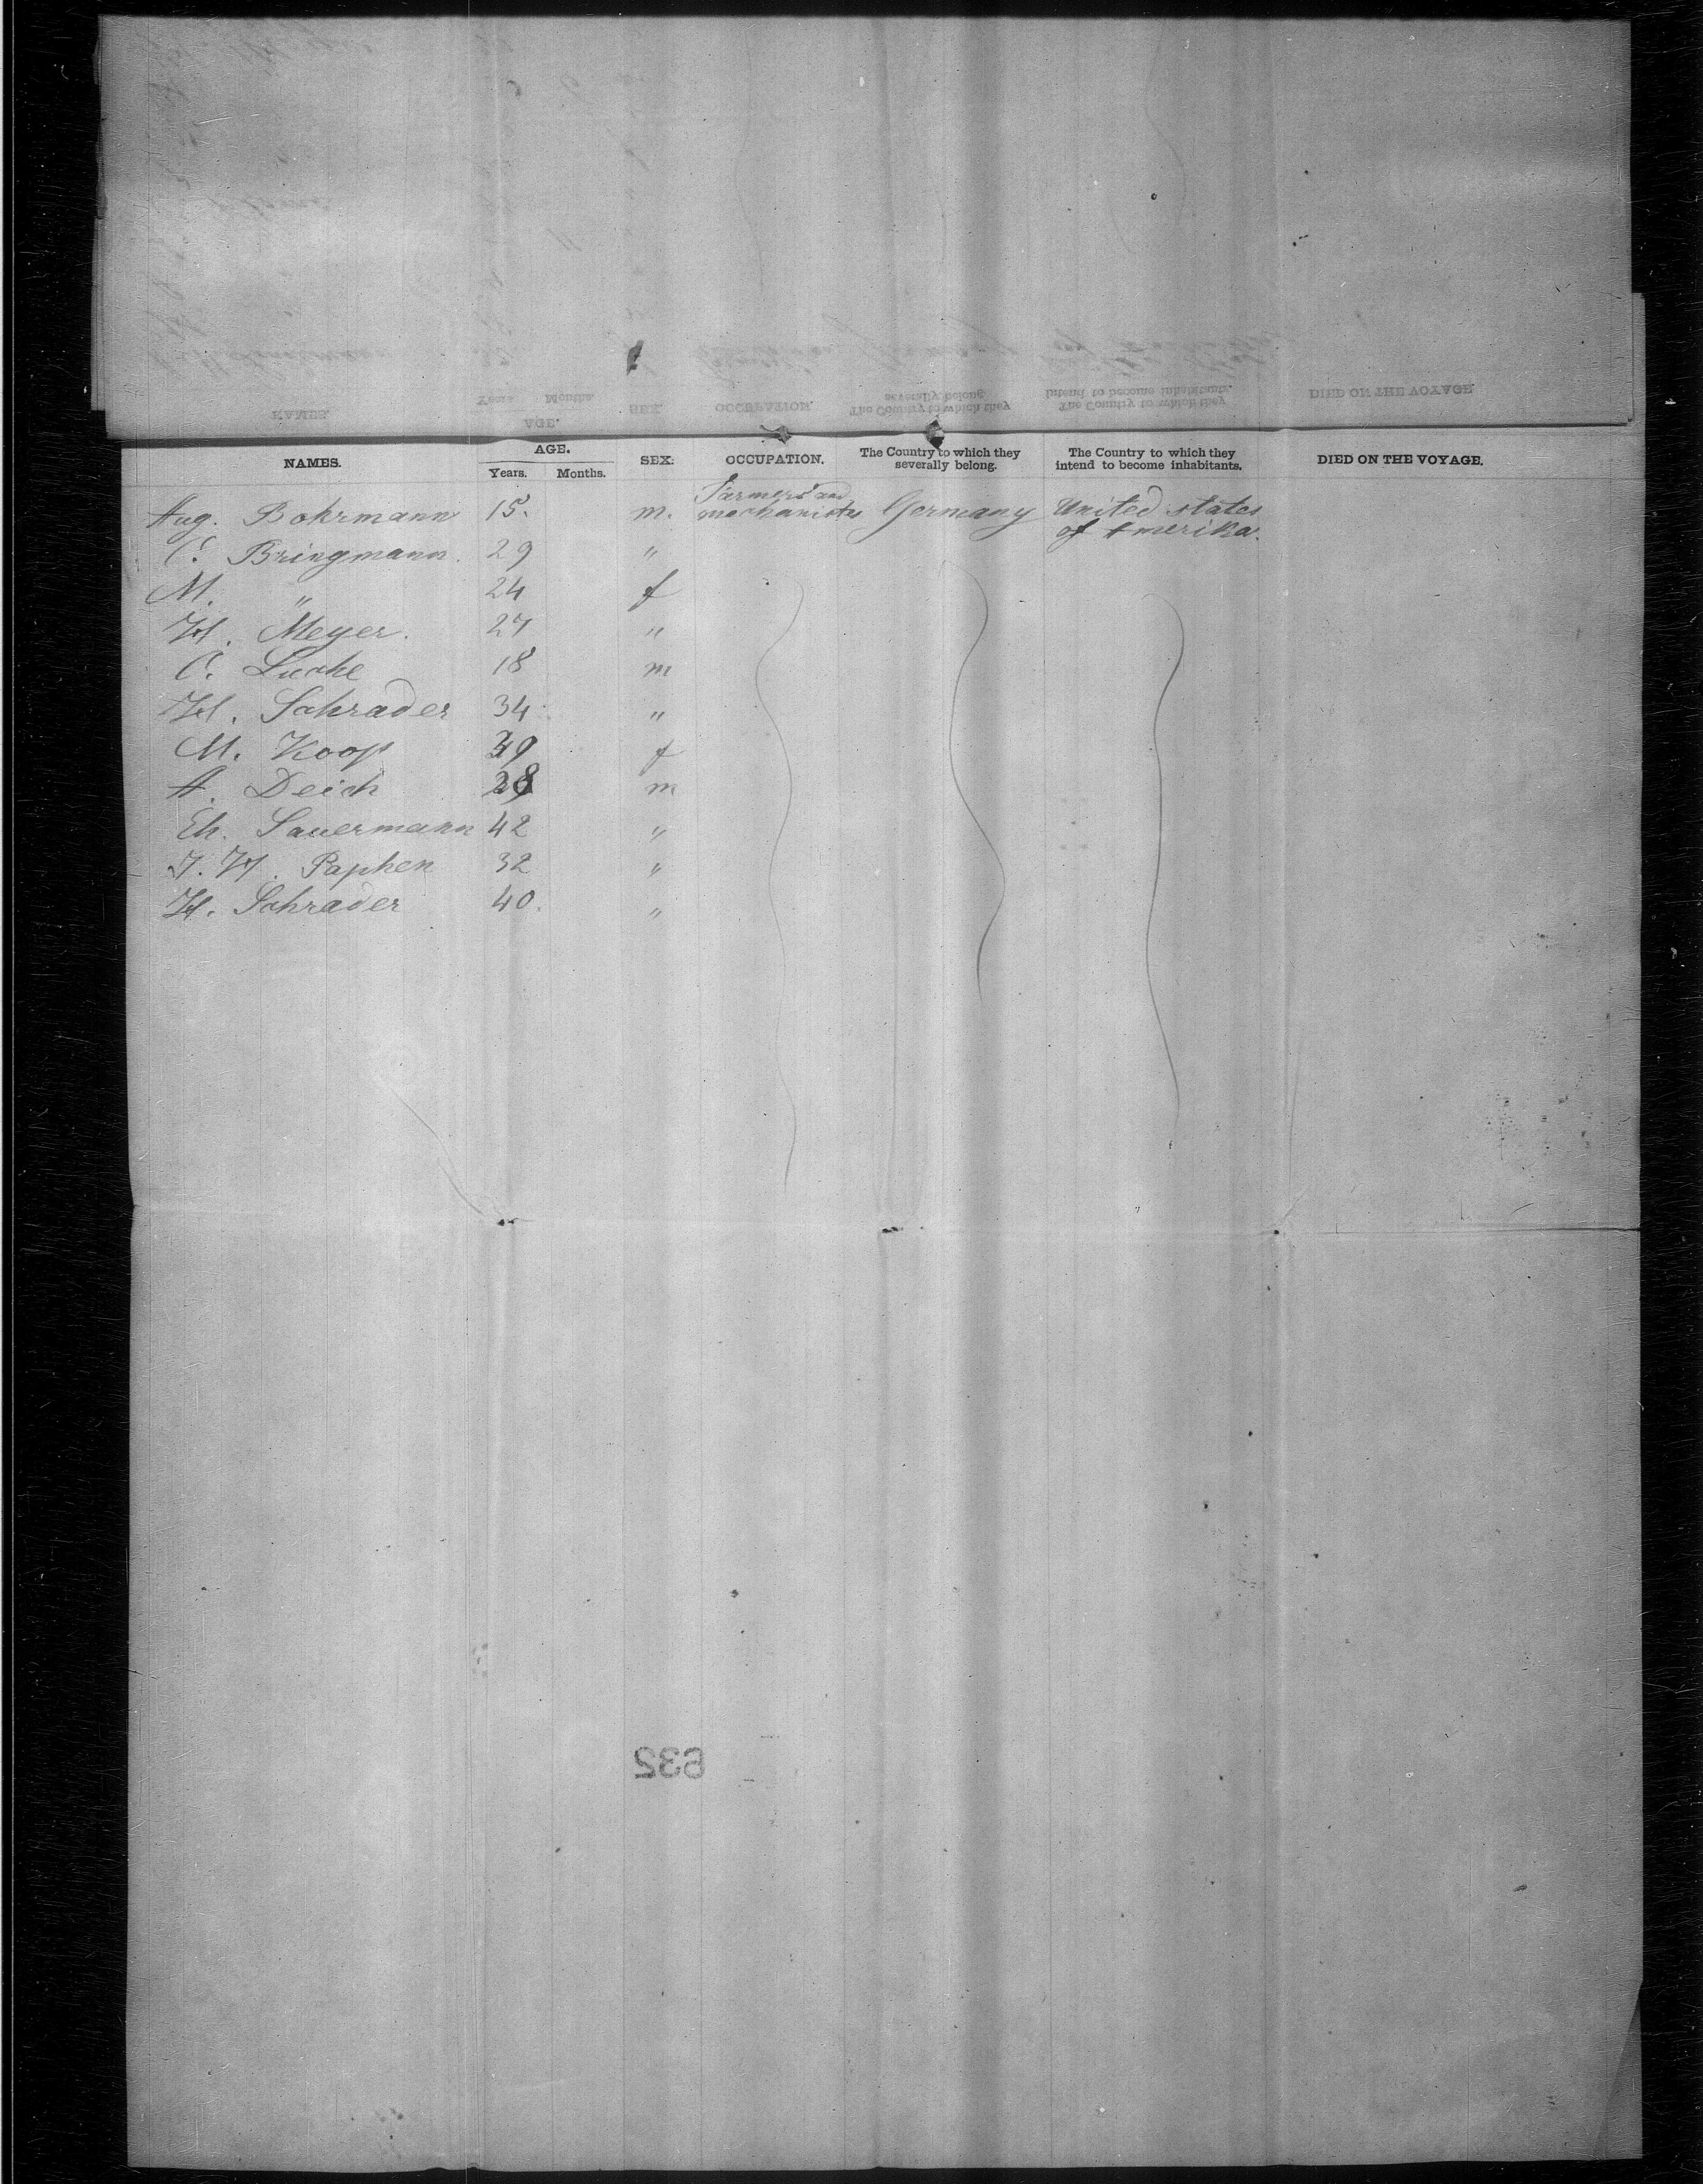 NAMES. AGE. SEX. OCCUPATION. The Country to which they severally belong. The Country to which they intend to become inhabitants. DIED ON THE VOYAGE.
Years. Months.
Aug. Bohrmann 15. m. Farmers and mechanicks Germany United states of Amerika.
C. Bringmann. 29 "
M. " 24 f
H. Meyer. 27 "
C. Lucke 18 m
H. Schrader 34 "
M. Koop 39 f
A. Deich 28 m
Eh. Sauermann 42 "
J. H. Paphen 32 "
H. Schrader 40. "
632